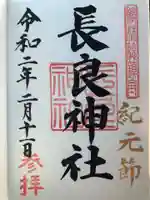 紀元節
長良神社
令和二年二月十一日
参拝